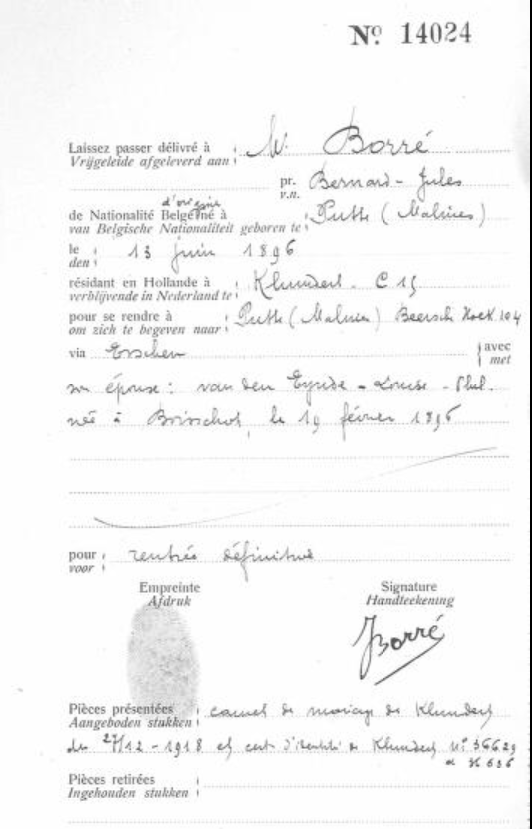 Nº 14024
Laissez passer délivré à Mr. Borré
Vrijgeleide afgeleverd aan
pr. Bernard - Jules
v.n.
d'origine
de Nationalité Belge né à Putte (Malines)
van Belgische Nationaliteit geboren te
le 13 juin 1896
den
résidant en Hollande à Klundert. C 15
verblijvende in Nederland te
pour se rendre à Putte (Malines) Beersch Hoek 104
om zich te begeven naar
via Esschen avec
met
son épouse : van den Eynde - Louise - Phil.
née à Boisschot, le 19 février 1896
pour rentrée définitive
voor
Empreinte Signature
Afdruk Handteekening
JBorré
Pièces présentées carnet de mariage de Klundert
Aangeboden stukken
du 27/12 - 1918 et cert. d'identité de Klundert nº 36629
et 36636
Pièces retirées
Ingehouden stukken